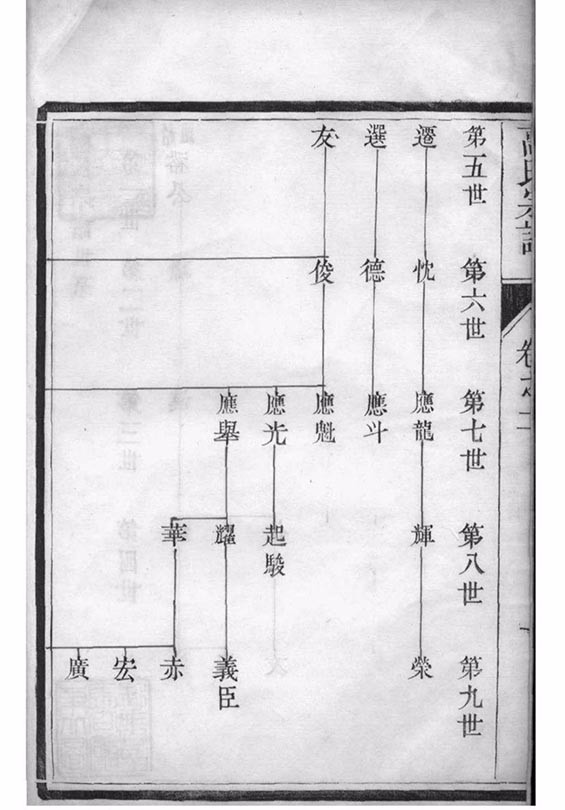 高氏宗譜
卷之二
第五世
遷
選
友
第六世
忱
德
俊
第七世
應龍
應斗
應魁
應光
應舉
第八世
輝
起駿
耀
華
第九世
榮
義臣
赤
宏
廣